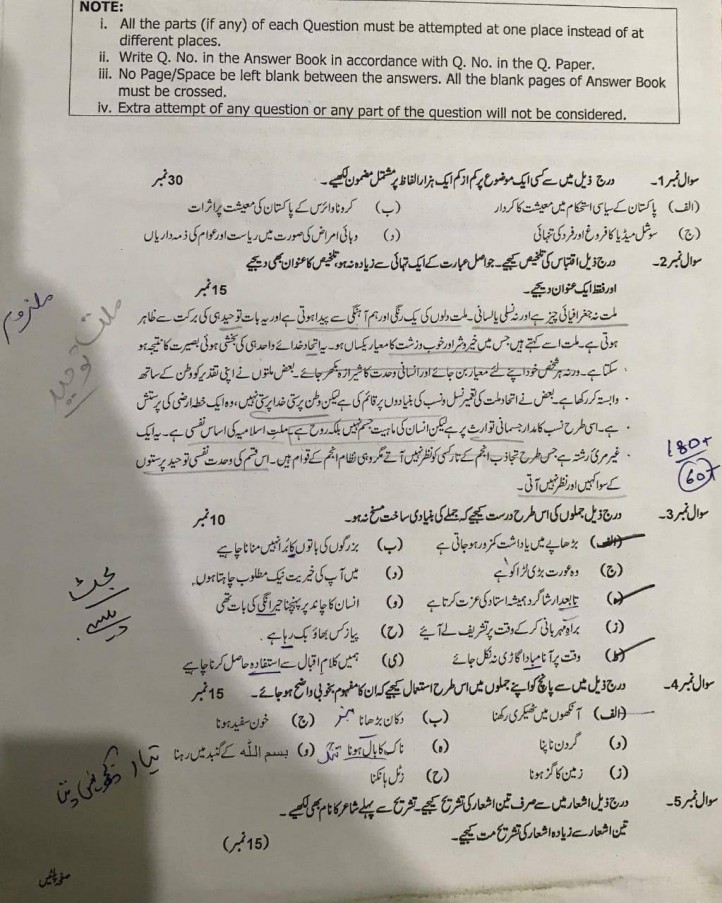 NOTE:
i. All the parts (if any) of each Question must be attempted at one place instead of at
different places.
ii. Write Q. No. in the Answer Book in accordance with Q. No. in the Q. Paper.
iii. No Page/Space be left blank between the answers. All the blank pages of Answer Book
must be crossed.
iv. Extra attempt of any question or any part of the question will not be considered.
سوال نمبر 1۔ درج ذیل میں سے کسی ایک موضوع پر کم از کم ایک ہزار الفاظ پر مشتمل مضمون لکھیے۔ 30 نمبر
(الف) پاکستان کے سیاسی استحکام میں معیشت کا کردار (ب) کرونا وائرس کے پاکستان کی معیشت پر اثرات
(ج) سوشل میڈیا کا فروغ اور فرد کی تنہائی (د) وبائی امراض کی صورت میں ریاست اور عوام کی ذمہ داریاں
سوال نمبر 2۔ درج ذیل اقتباس کی تلخیص کیجیے۔ جو اصل عبارت کے ایک تہائی سے زیادہ نہ ہو، تلخیص کا عنوان بھی دیجیے
اور فقط ایک عنوان دیجیے۔ 15 نمبر
ملت نہ جغرافیائی چیز ہے اور نہ نسلی یا لسانی۔ ملت دلوں کی یک رنگی اور ہم آہنگی سے پیدا ہوتی ہے اور یہ بات توحید ہی کی برکت سے ظاہر
ہوتی ہے۔ ملت اسے کہتے ہیں، جس میں خیر و شر اور خوب و زشت کا معیار یکساں ہو۔ یہ اتحاد خدائے واحد ہی کی بخشی ہوئی بصیرت کا نتیجہ ہو
سکتا ہے۔ ورنہ ہر شخص خود اپنے لئے معیار بن جائے اور انسانی وحدت کا شیرازہ بکھر جائے۔ بعض ملتوں نے اپنی تقدیر کو وطن کے ساتھ
وابستہ کر رکھا ہے۔ بعض نے اتحاد ملت کی تعمیر نسل و نسب کی بنیادوں پر قائم کی ہے لیکن وطن پرستی خدا پرستی نہیں، وہ ایک خطہ ارضی کی پرستش
ہے۔ اسی طرح نسب کا مدار جسمانی توارث پر ہے لیکن انسان کی ماہیت جسم نہیں بلکہ روح ہے۔ ملتِ اسلامیہ کی اساس نفسی ہے۔ یہ ایک
غیر مرئی رشتہ ہے جس طرح تجاذب انجم کے تار کسی کو نظر نہیں آتے مگر وہی نظام انجم کے قوام ہیں۔ اس قسم کی وحدت نفسی توحید پرستوں
کے سوا کہیں اور نظر نہیں آتی۔
ملت توحید
180+
60+
سوال نمبر 3۔ درج ذیل جملوں کی اس طرح درست کیجیے کہ جملے کی بنیادی ساخت مسخ نہ ہو۔ 10 نمبر
(الف) بڑھاپے میں یاداشت کمزور ہو جاتی ہے (ب) بزرگوں کی باتوں کا بُرا نہیں منانا چاہیے
(ج) وہ عورت بڑی لڑاکو ہے (د) میں آپ کی خیریت نیک مطلوب چاہتا ہوں۔
(ہ) تابعدار شاگرد ہمیشہ استاد کی عزت کرتا ہے (و) انسان کا چاند پر پہنچنا حیرانگی کی بات تھی
(ز) براہِ مہربانی کر کے وقت پر تشریف لے آئیے (ح) پیاز کس بھاؤ بک رہا ہے۔
(ط) وقت پر آنا مبادا گاڑی نہ نکل جائے (ی) ہمیں کلامِ اقبال سے استفادہ حاصل کرنا چاہیے
سوال نمبر 4۔ درج ذیل میں سے پانچ کو اپنے جملوں میں اس طرح استعمال کیجیے کہ ان کا مفہوم بخوبی واضح ہو جائے۔ 15 نمبر
(الف) آنکھوں میں ٹھیکری رکھنا (ب) دکان بڑھانا (ج) خون سفید ہونا
(د) گردن ناپنا (ہ) ناک کا بال ہونا (و) بسم اللہ کے گنبد میں رہنا
(ز) زمین کا گز ہونا (ح) زٹل ہانکنا
سوال نمبر 5۔ درج ذیل اشعار میں سے صرف تین اشعار کی تشریح کیجیے۔ تشریح سے پہلے شاعر کا نام بھی لکھیے۔
تین اشعار سے زیادہ اشعار کی تشریح مت کیجیے۔ (15 نمبر)
صفحہ پلٹیں